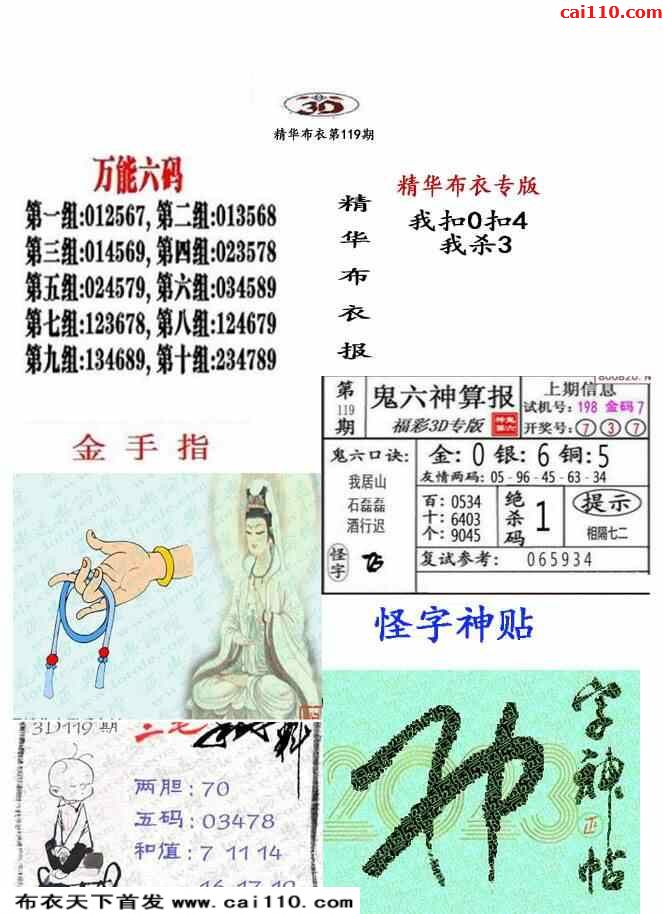 cai110.com
3D
精华布衣第119期
万能六码
第一组:012567, 第二组:013568
第三组:014569, 第四组:023578
第五组:024579, 第六组:034589
第七组:123678, 第八组:124679
第九组:134689, 第十组:234789
精华布衣报
精华布衣专版
我扣0扣4
我杀3
金手指
第119期
鬼六神算报
福彩3D专版
上期信息
试机号: 198 金码7
开奖号: 7 3 7
鬼六口诀:
我居山
石磊磊
酒行迟
怪字
金: 0 银: 6 铜: 5
友情两码: 05-96-45-63-34
百: 0534
十: 6403
个: 9045
绝杀码
1
提示
相隔七二
复试参考: 065934
怪字神贴
字神帖
2023
3D119期
两胆: 70
五码: 03478
和值: 7 11 14
布衣天下首发 www.cai110.com